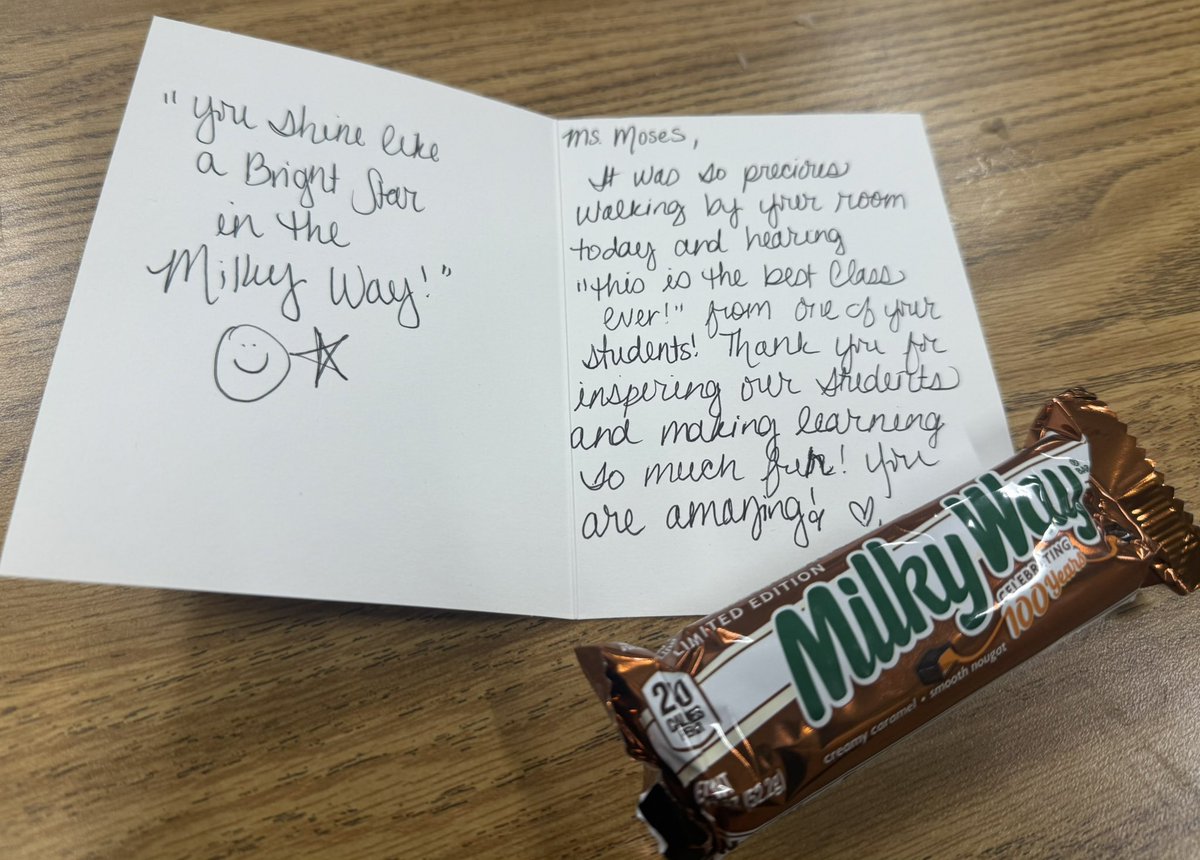 "You shine like
a Bright Star
in the
Milky Way!"
Ms. Moses,
It was so precious
walking by your room
today and hearing
"this is the best class
ever!" from one of your
students! Thank you for
inspiring our students
and making learning
so much fun! You
are amazing!
LIMITED EDITION
Milky Way
BAR
CELEBRATING
100 Years
creamy caramel • smooth nougat